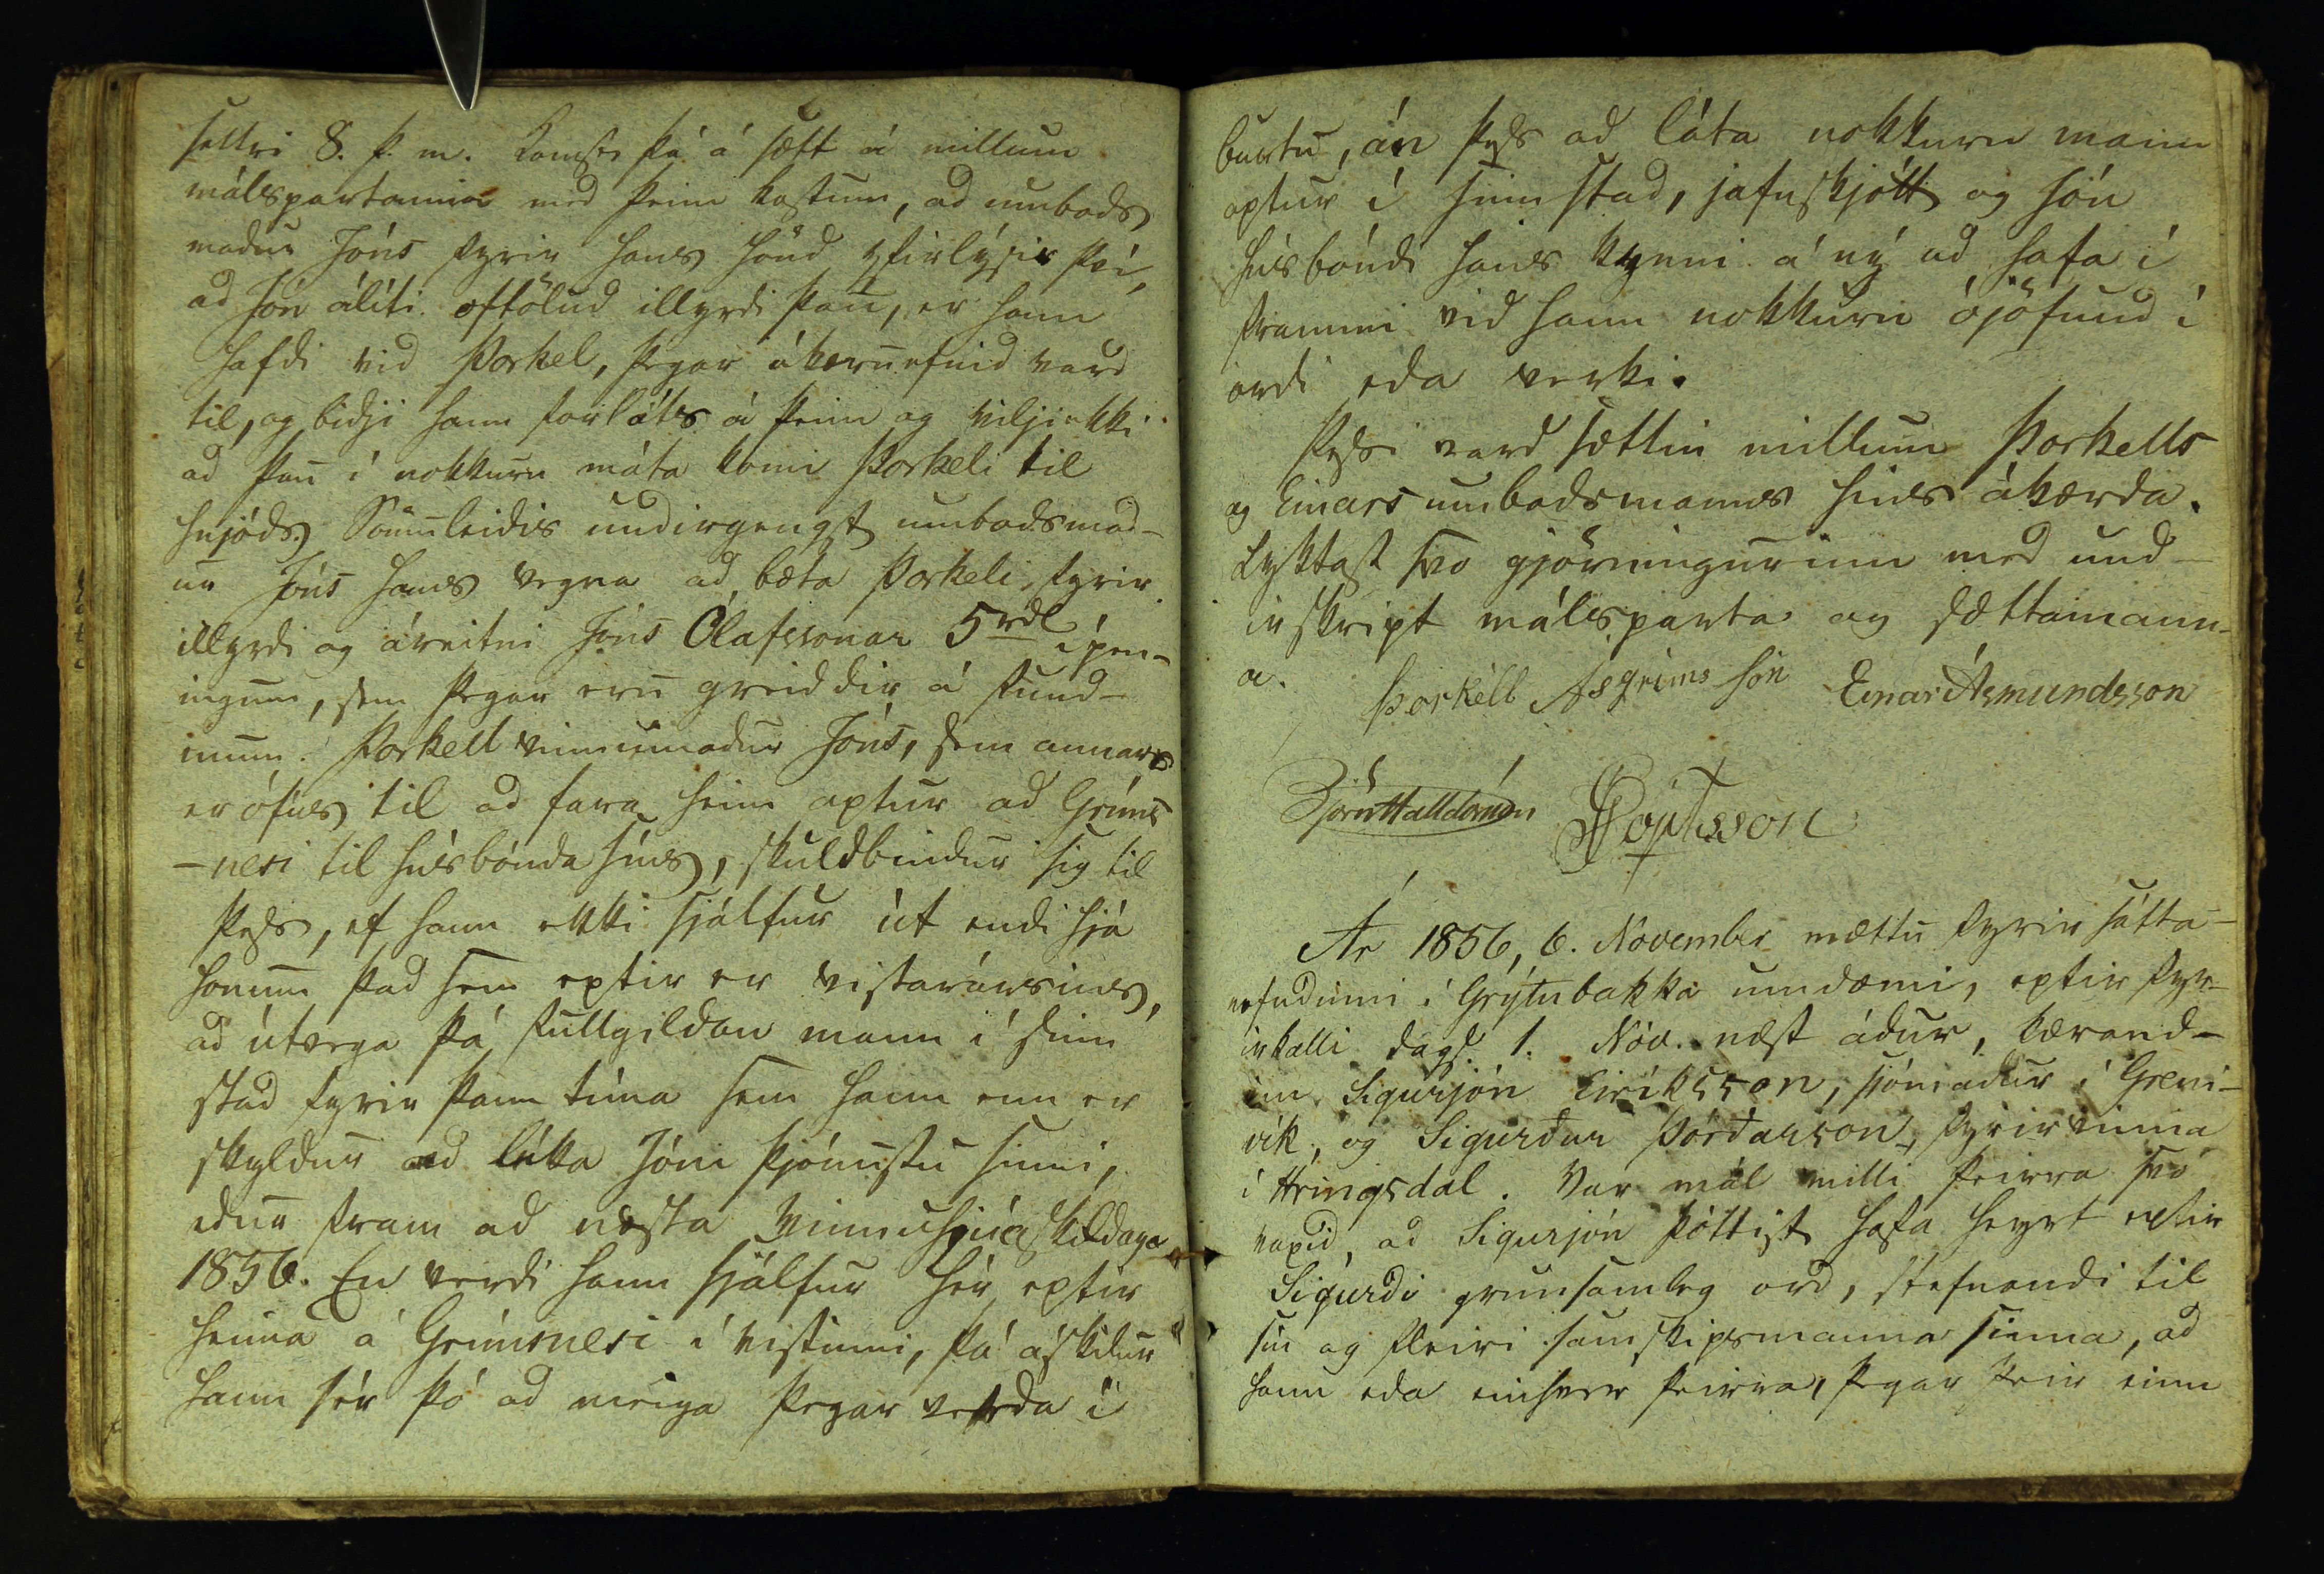 settri 8. þ. m. Komst þá á sætt á millum
málspartanna med þeim kostum, ad umbods
madur Jóns fyrir hans hönd yfirlýsir því,
ad Jón álíti oftölud illyrdi þau, er hann
hafdi vid Þorkel, þegar ákæruefnid vard
til, og bidji hann forláts á þeim og vilji ekki
ad þau í nokkurn máta komi Þorkeli til
hnjóds. Sömuleidis undirgengst umbodsmad-
ur Jóns hans vegna ad bæta Þorkeli fyrir
illyrdi og áreitni Jóns Ólafssonar 5 rdl í pen-
ingum, sem þegar eru greiddir á fund-
inum. Þorkell vinnumadur Jóns, sem annars
er ófús til ad fara heim aptur ad Gríms
-nesi til húsbónda síns, skuldbindur sig til
þess, ef hann ekki sjálfur út endi hjá
honum þad sem eptir er vistarársins,
ad útvega þá fullgildan mann í sinn
stad fyrir þann tíma sem hann enn er
skyldur ad lúka Jóni þjónustu sinni,
edur fram ad næsta vinnuhjúa skildaga
1856. En verdi hann sjálfur hér eptir
heima á Grímsnesi í vistinni, þá áskilur
hann sér þó ad meiga þegar verda í
burtu, án þess ad láta nokkurn mann
aptur í sinn stad, jafnskjótt og Jón
húsbóndi hans kynni á ný ad hafa í
frammi vid hann nokkurn ójöfnud í
ordi eda verki.
Þessi vard sættin millum Þorkells
og Einars umbodsmanns hins ákærda.
Lyktast svo gjörningurinn med und-
irskript málsparta og sættamann-
a.
Þorkell Asgrims són Einar Ásmundsson
Björn Halldórsson
Ár 1856, 6. November mættu fyrir sátta-
nefndinni í Grýtubakka umdæmi, eptir fyr-
irkalli dags. 1. Nóv. næst ádur, kærand-
inn Sigurjón Eiríksson, sjómadur í Greni-
vík, og Sigurður Þórðarson, fyrirvinna
í Hringsdal. Var mál milli þeirra svo
vaxid, ad Sigurjón þóttist hafa heyrt eptir
Sigurdi grunsamleg ord, stefnandi til
sín og fleiri samskipsmanna sinna, ad
hann eda einhver þeirra, þegar þeir einn